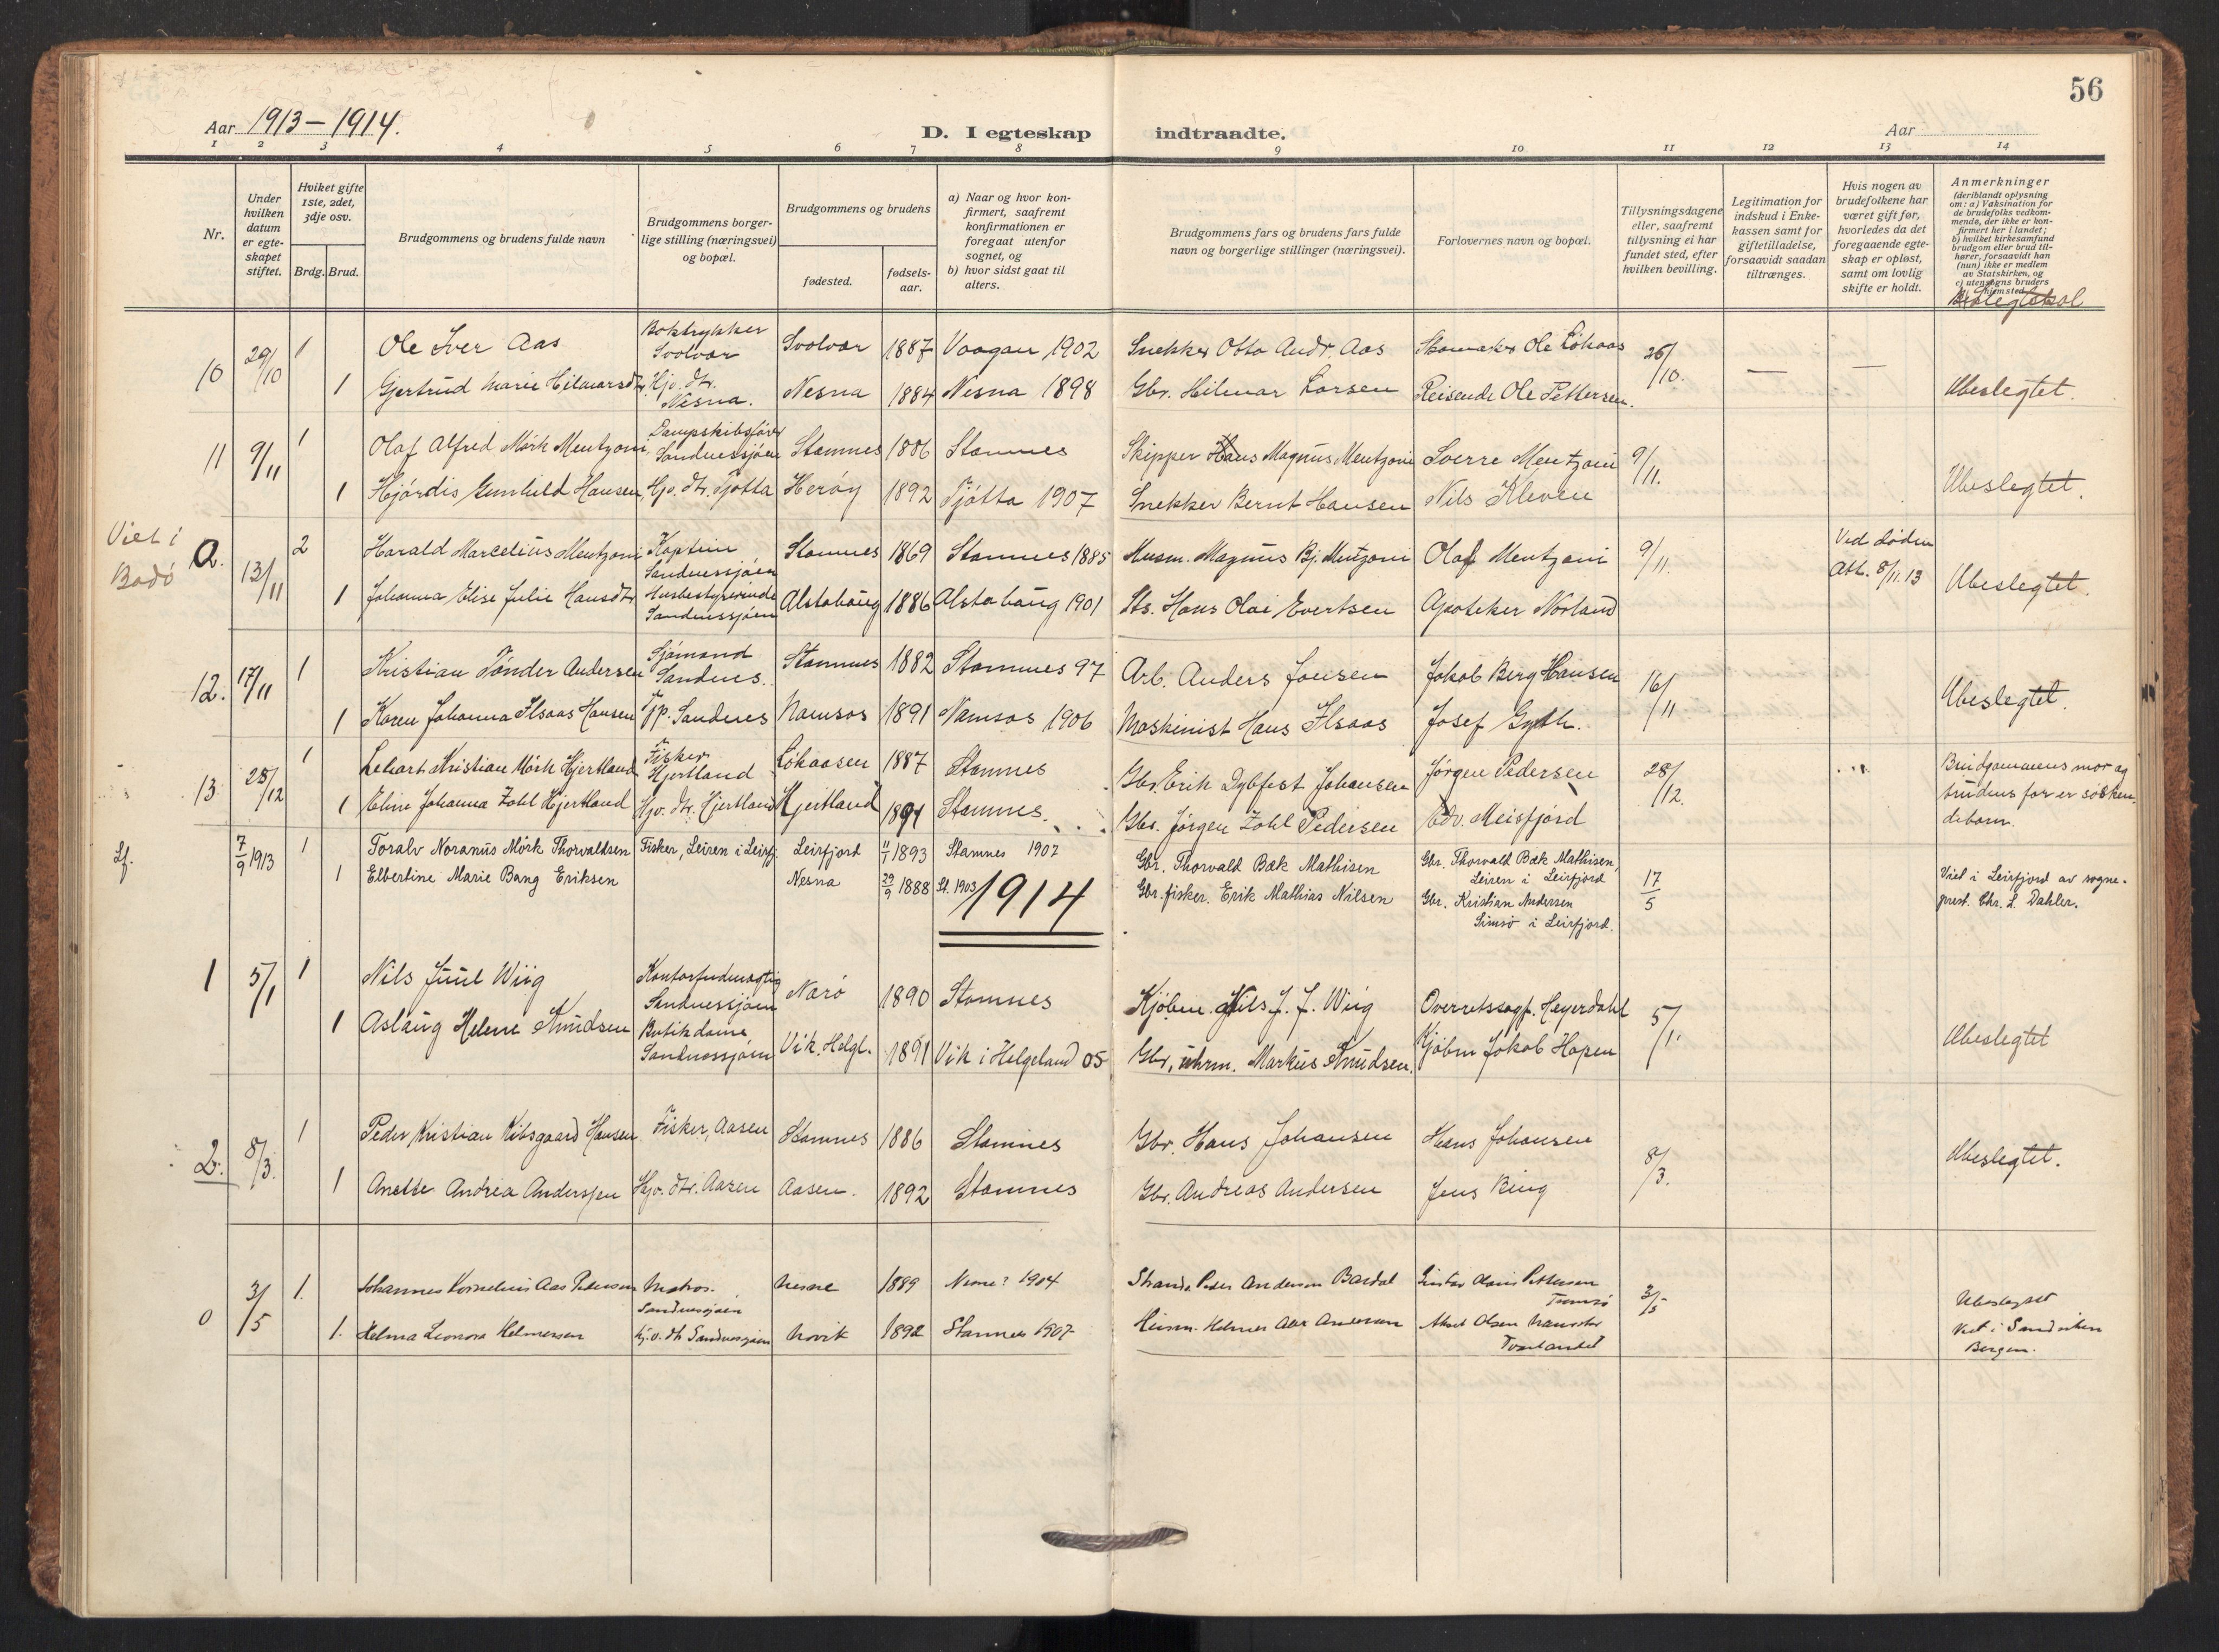 56
Aar 1913-1914.
D. I egteskap indtraadte.
Aar
1 2 3 4 5 6 7 8 9 10 11 12 13 14
Nr.
Under hvilken datum er egteskapet stiftet.
Hviket gifte 1ste, 2det, 3dje osv.
Brdg. Brud.
Brudgommens og brudens fulde navn
Brudgommens borgerlige stilling (næringsvei) og bopæl.
Brudgommens og brudens
fødested.
fødselsaar.
a) Naar og hvor konfirmert, saafremt konfirmationen er foregaat utenfor sognet, og
b) hvor sidst gaat til alters.
Brudgommens fars og brudens fars fulde navn og borgerlige stillinger (næringsvei).
Forlovernes navn og bopæl.
Tillysningsdagene eller, saafremt tillysning ei har fundet sted, efter hvilken bevilling.
Legitimation for indskud i Enkekassen samt for giftetilladelse, forsaavidt saadan tiltrænges.
Hvis nogen av brudefolkene har været gift før, hvorledes da det foregaaende egteskap er opløst, samt om lovlig skifte er holdt.
Anmerkninger
(deriblandt oplysning om: a) Vaksination for de brudefolks vedkommende, der ikke er konfirmert her i landet; b) hvilket kirkesamfund brudgom eller brud tilhører, forsaavidt han (hun) ikke er medlem av Statskirken, og c) utensogns bruders hjemsted.
10 29/10 1 Ole Iver Aas Boktrykker Svolvær Svolvær 1887 Vaagan 1902 Snekker Otto Andr. Aas Skomaker Ole Løkaas 26/10. — —
1 Gjertrud Marie Hilmarsdtr. Hjv. dtr. Nesna. Nesna 1884 Nesna 1898 Gbr. Hilmar Larsen Reisende Ole Pettersen. Ubeslegtet.
11 9/11 1 Olaf Alfred Mörk Mentzoni Dampskibsfører Sandnessjöen Stamnes 1886 Stamnes Skipper Hans Magnus Mentzoni Sverre Mentzoni 9/11.
1 Hjördis Gunhild Hansen Hjv. dtr. Tjötta Heröy 1892 Tjötta 1907 Snekker Bernt Hansen Nils Kleven Ubeslegtet.
Viet i Bodö
a. 13/11 2 Harald Marcelius Mentzoni Kaptein Sandnessjöen Stamnes 1869 Stamnes 1885 Husm. Magnus Bj. Mentzoni Olaf Mentzoni 9/11. Ved döden Att. 8/11.13
1 Johanna Elise Julie Hansdtr Husbestyrerinde Sandnessjöen Alstahaug 1886 Alstahaug 1901 Sts. Hans Olai Evertsen Apoteker Norland Ubeslegtet.
12. 17/11 1 Kristian Tönder Andersen Sjömand Sandnes. Stamnes 1882 Stamnes 97 Arb. Anders Jonsen Jakob Berg Hansen 16/11
1 Karen Johanna Ilsaas Hansen Tjp. Sandnes Namsos 1891 Namsos 1906 Maskinist Hans Ilsaas Josef Ubeslegtet.
13. 28/12 1 Kristian Mörk Hjertland Fisker Hjertland Løkaasen 1887 Stamnes Gbr. Erik Dybfest Johansen Jörgen Pedersen 28/12. Brudgommens mor og brudens far er søskendebarn.
1 Eline Johanna Zahl Hjertland Hjv. dtr. Hjertland Hjertland 1891 Stamnes. Gbr. Jörgen Zahl Pedersen Edv. Meisfjord
Lf. 7/9 1913 1 Toralv Noranus Mörk Thorvaldsen Fisker, Leiren i Leirfj. Leirfjord 11/1 1893 Stamnes 1907 Gbr. Thorvald Bæk Mathisen Gbr. Thorvald Bæk Mathisen, Leiren i Leirfjord 17/5 Viet i Leirfjord av sogneprest. Chr. L. Dahler.
1 Elbertine Marie Bang Eriksen Nesna 29/9 1888 St. 1903 Gbr. fisker. Erik Mathias Nilsen Gbr. Kristian Andersen Simsö i Leirfjord.
1914
1 5/1 1 Nils Juul Wiig Kontorfuldmægtig Sandnessjöen Nærö 1890 Stamnes Kjöbm. Nils J. J. Wiig Overretssagf. Heyerdahl 5/1.
1 Aslaug Helene Knudsen Butikdame Sandnessjöen Vik, Helgl. 1891 Vik i Helgeland 05 Gbr., uhrm. Markus Knudsen. Kjöbm Jakob Hopen Ubeslegtet
2. 8/3. 1 Peder Kristian Kibsgaard Hansen Fisker, Aasen Stamnes 1886 Stamnes Gbr. Hans Johansen Hans Johansen 8/3. Ubeslegtet.
1 Anette Andrea Anderssen Hjv. dtr. Aasen Aasen. 1892 Stamnes Gbr. Andreas Andersen Jens Bing
0 3/5 1. Johannes Kornelius Aas Pedersen Matros. Sandnessjøen Nesne 1889 Nesne? 1904 Strands. Peder Andersen Bardal Gustav Pettersen Tromsø 3/5
1. Helma Leonora Helmersen Hj.v. dtr Sandnessjøen 1892 Stamnes 1907 Helmer Aas Andersen Olsen Tverlandet
Ubeslegtet Viet i Sandviken Bergen.